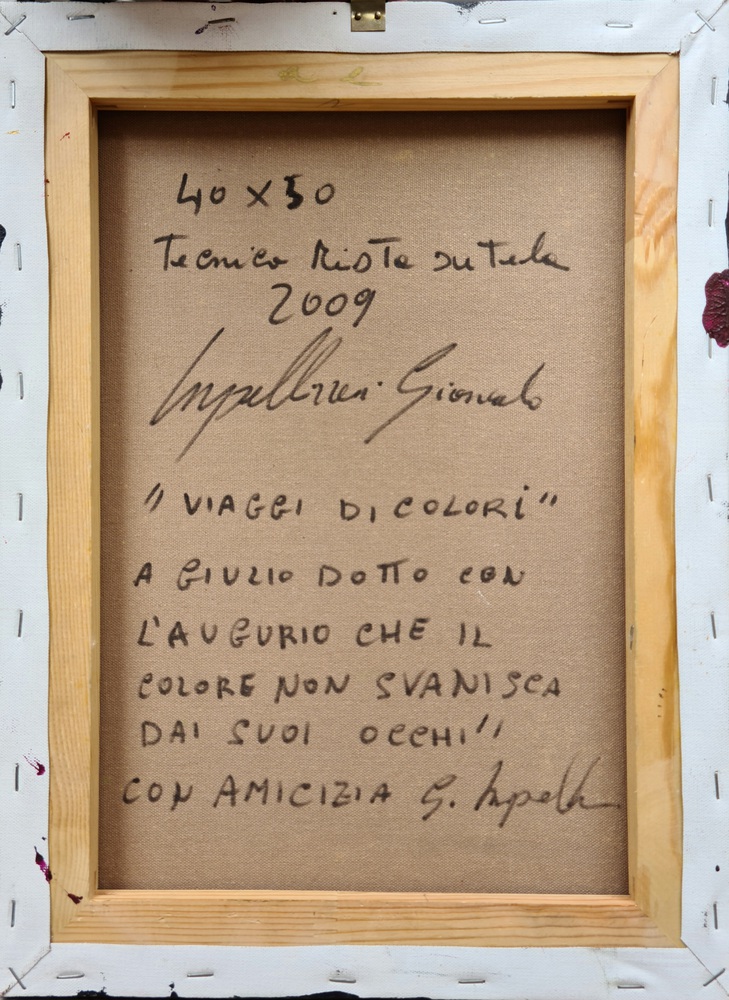 40 x 50
Tecnica Mista su Tela
2009
Impellizzeri Giancarlo
"VIAGGI DI COLORI"
A GIULIO DOTTO CON
L'AUGURIO CHE IL
COLORE NON SVANISCA
DAI SUOI OCCHI"
CON AMICIZIA G. Impell